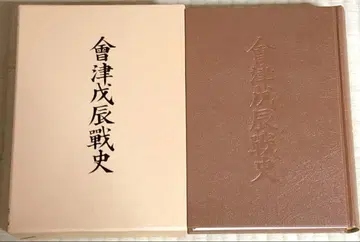 會津戊辰戰史
會津戊辰戰史